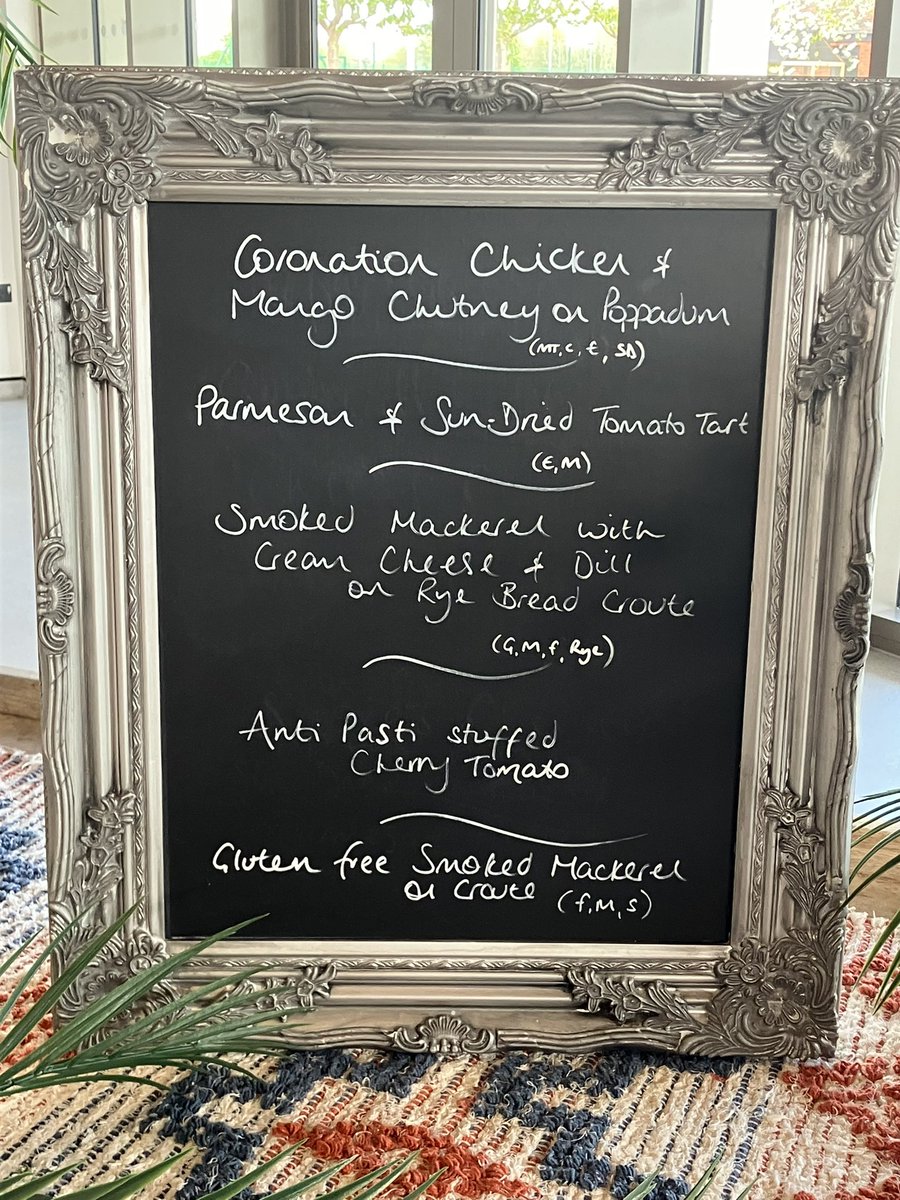 Coronation Chicken &
Mango Chutney on Poppadum
(MT, C, E, SD)
Parmesan & Sun-Dried Tomato Tart
(E, M)
Smoked Mackerel with
Cream Cheese & Dill
on Rye Bread Croute
(G, M, f, Rye)
Anti Pasti stuffed
Cherry Tomato
Gluten free Smoked Mackerel
on Croute (f, M, S)